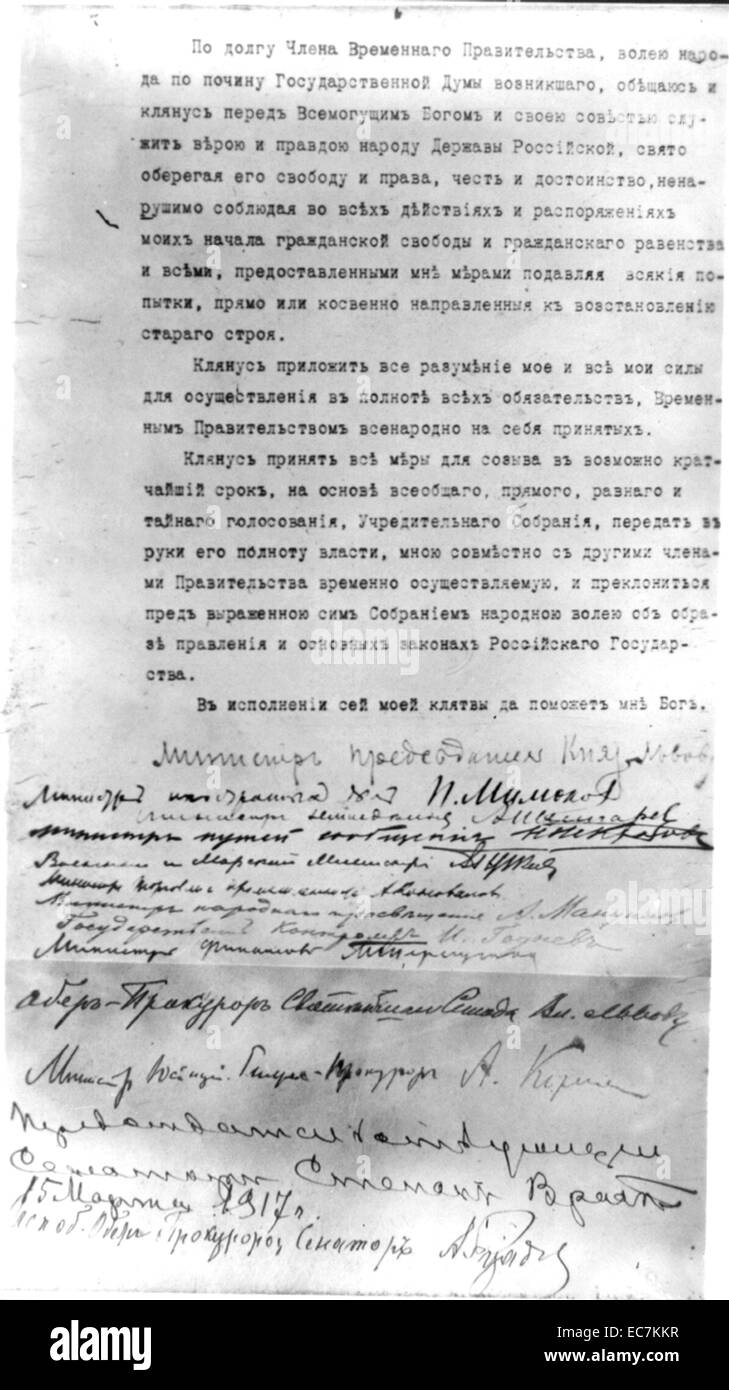 По долгу Члена Временнаго Правительства, волею наро-
да по почину Государственной Думы возникшаго, обѣщаюсь и
клянусь передъ Всемогущимъ Богомъ и своею совѣстью слу-
жить вѣрою и правдою народу Державы Россійской, свято
оберегая его свободу и права, честь и достоинство, нена-
рушимо соблюдая во всѣхъ дѣйствіяхъ и распоряженіяхъ
моихъ начала гражданской свободы и гражданскаго равенства
и всѣми, предоставленными мнѣ мѣрами подавляя всякія по-
пытки, прямо или косвенно направленныя къ возстановленію
стараго строя.
Клянусь приложить все разумѣніе мое и всѣ мои силы
для осуществленія въ полнотѣ всѣхъ обязательствъ, Времен-
нымъ Правительствомъ всенародно на себя принятыхъ.
Клянусь принять всѣ мѣры для созыва въ возможно крат-
чайшій срокъ, на основѣ всеобщаго, прямого, равнаго и
тайнаго голосованія, Учредительнаго Собранія, передать въ
руки его полноту власти, мною совмѣстно съ другими члена-
ми Правительства временно осуществляемую, и преклониться
предъ выраженною симъ Собраніемъ народною волею объ обра-
зѣ правленія и основныхъ законахъ Россійскаго Государ-
ства.
Въ исполненіи сей моей клятвы да поможетъ мнѣ Богъ.
Министръ председатель Княз Львовъ
Министръ иностранныхъ дѣл П. Милюков
Министръ земледелия А Шингарев
министръ путей сообщения Н Некрасовъ
Военный и Морской Министръ А Гучков
Министр торговли и промышленности А Коновалов
Министръ народнаго просвещения А. Мануилов
Государственный Контролеръ И. Годневъ
Министръ финансовъ М Терещенко
Оберъ-Прокуроръ Святейшаго Синода Вл. Львовъ
Министр Юстиции, Генерал-Прокуроръ А. Керенский
Сенаторъ Степанъ Врас
15 Марта 1917 г.
Оберъ Прокурора Сенаторъ
alamy
alamy
Image ID: EC7KKR
www.alamy.com